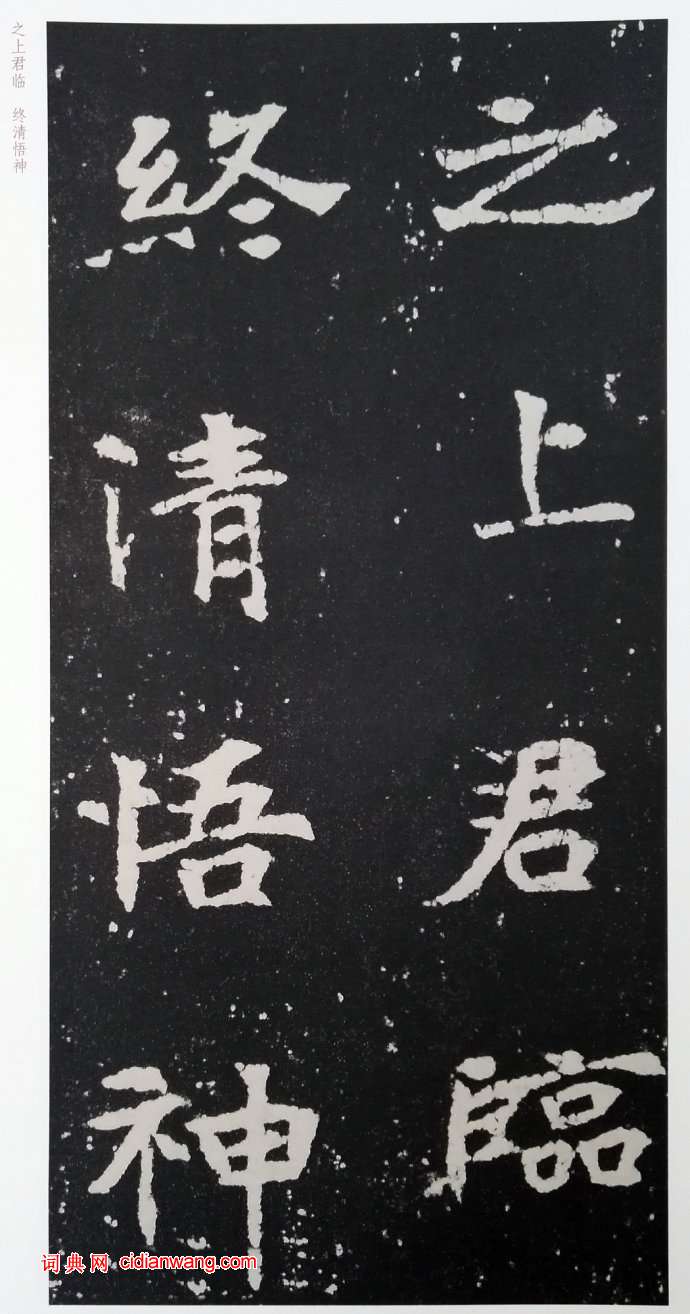 之上君臨
終清悟神
之上君临 终清悟神
词典网 cidianwang.com